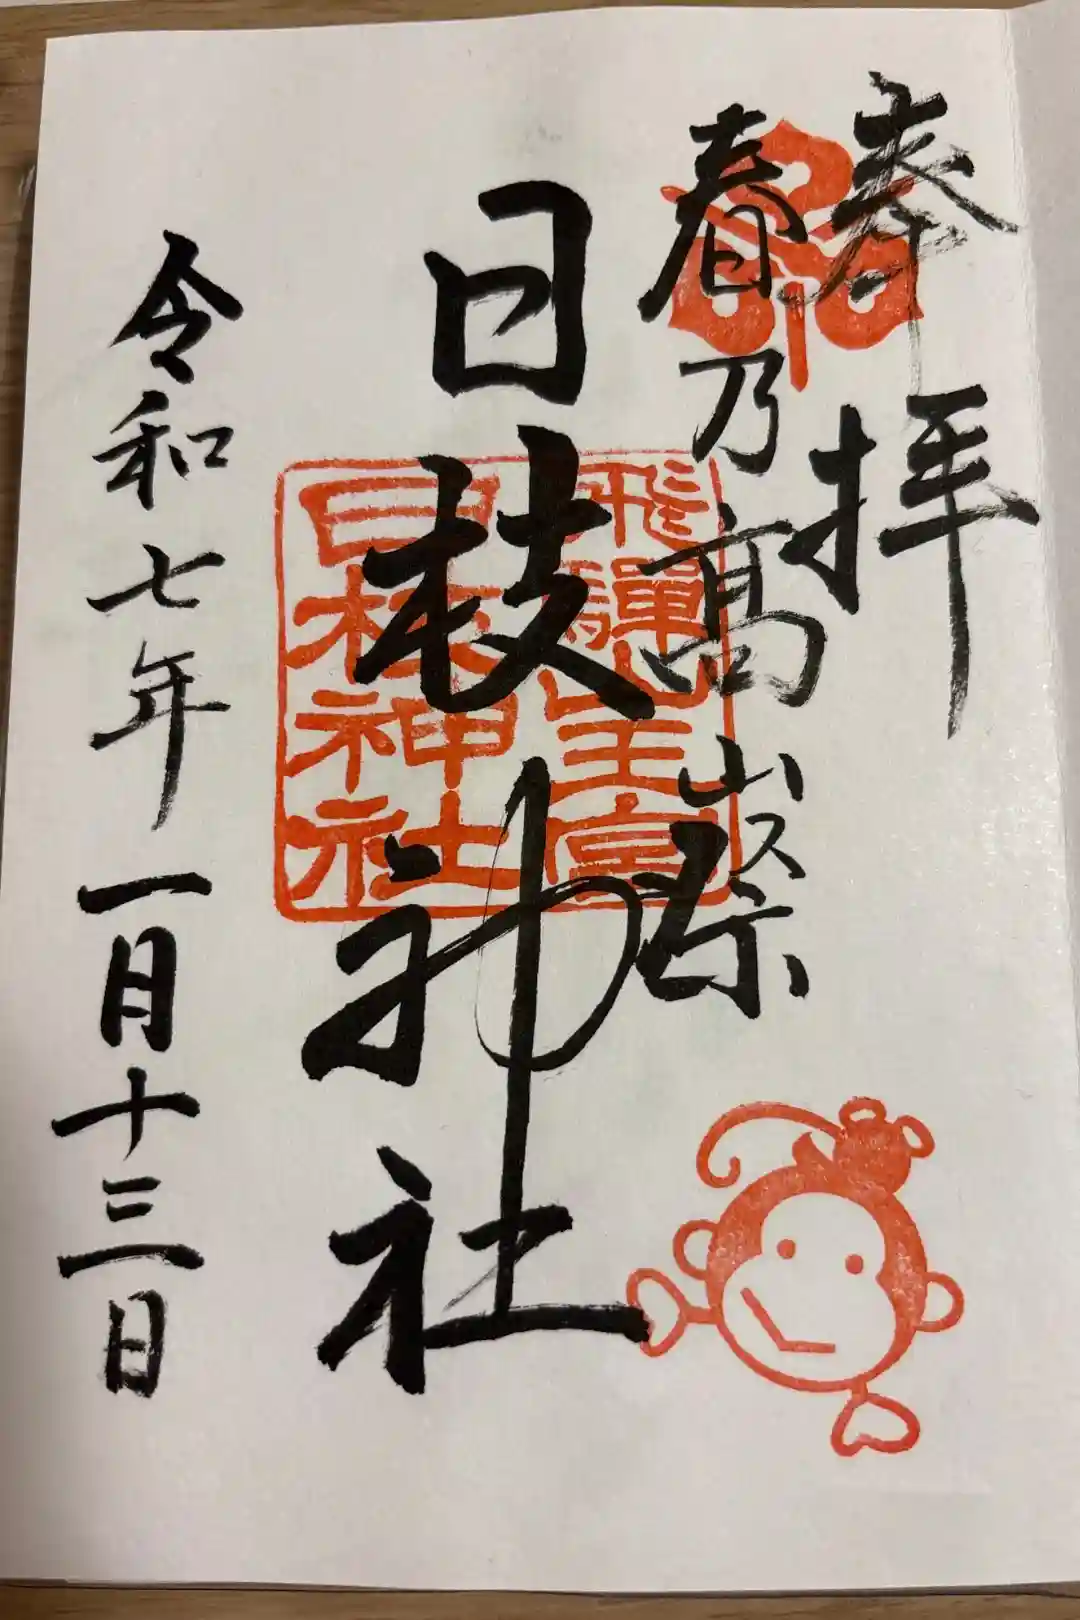 奉拝
春乃高山祭
日枝神社
飛騨山王宮
日枝神社
令和七年一月十三日